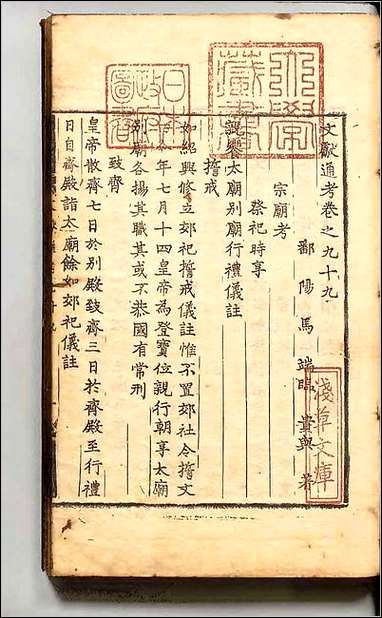 文獻通考卷之九十九
鄱陽馬端臨貴與著
宗廟考
祭祀時享
親饗太廟別廟行禮儀註
誓戒
如紹興修立郊祀誓戒儀註惟不置郊社令誓文
今年七月十四皇帝為登寶位親行朝享太廟
別廟各揚其職其或不恭國有常刑
致齊
皇帝散齊七日於別殿致齊三日於齊殿至行禮
日自齋殿詣太廟餘如郊祀儀註
大學藏書
日本政府圖書
淺草文庫